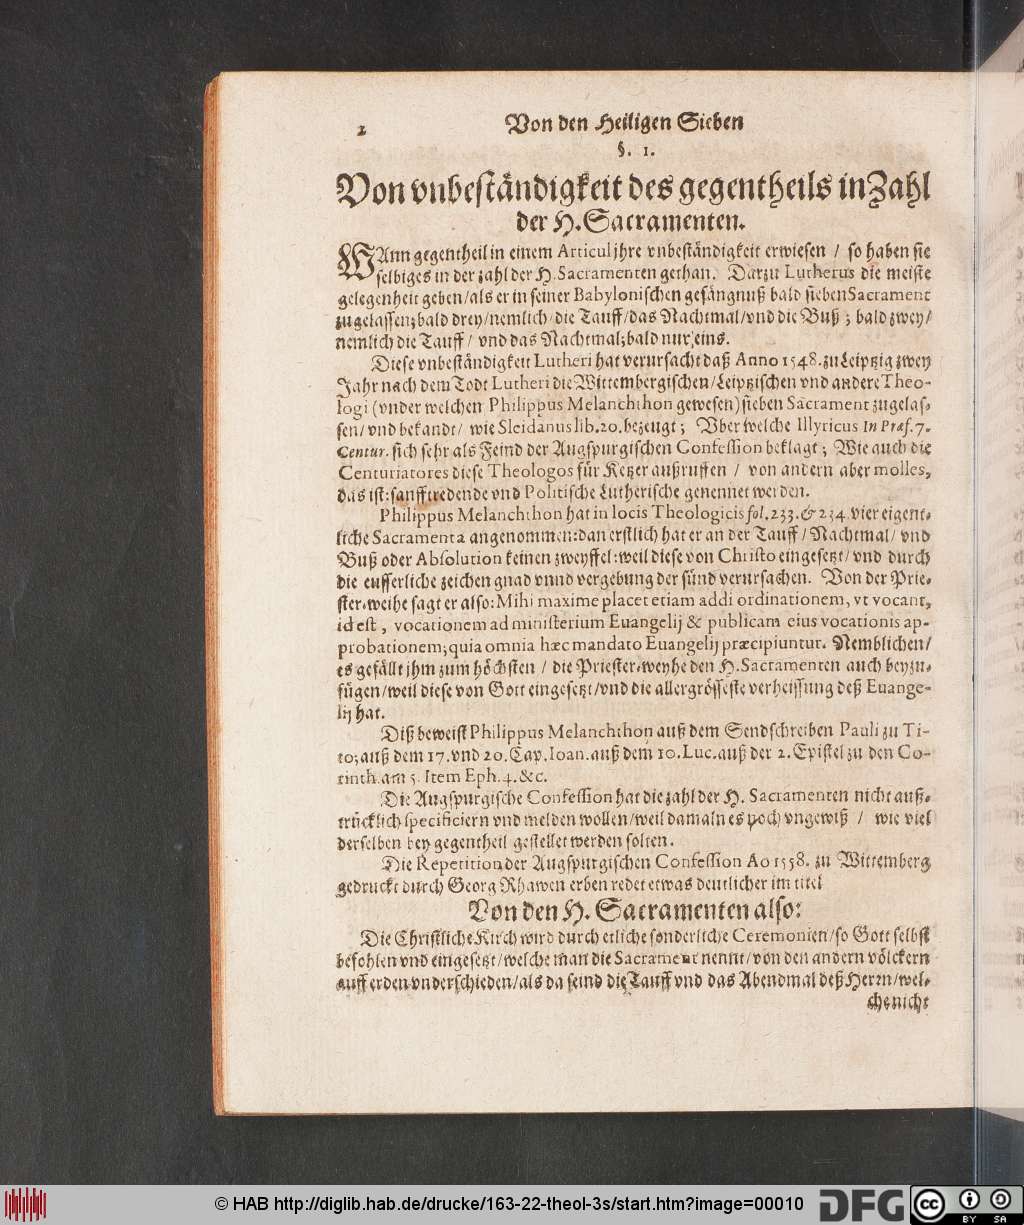 2 Von den Heiligen Sieben
§. 1.
Von vnbeständigkeit des gegentheils in Zahl
der H. Sacramenten.
WAnn gegentheil in einem Articul jhre vnbeständigkeit erwiesen / so haben sie
selbiges in der zahl der H. Sacramenten gethan. Darzu Lutherus die meiste
gelegenheit geben/als er in seiner Babylonischen gefängnuß bald sieben Sacrament
zugelassen; bald drey/nemlich/die Tauff/das Nachtmal/vnd die Buß; bald zwey/
nemlich die Tauff/ vnd das Nachtmal; bald nur eins.
Diese vnbeständigkeit Lutheri hat verursacht daß Anno 1548. zu Leiptzig zwey
Jahr nach dem Todt Lutheri die Wittembergischen/Leiptzischen vnd andere Theo-
logi (vnder welchen Philippus Melanchthon gewesen) sieben Sacrament zugelas-
sen/vnd bekandt/ wie Sleidanus lib. 20. bezeugt; Vber welche Illyricus In Præf. 7.
Centur. sich sehr als Feind der Augspurgischen Confession beklagt; Wie auch die
Centuriatores diese Theologos für Ketzer außruffen / von andern aber molles,
das ist: sanfftredende vnd Politische Lutherische genennet werden.
Philippus Melanchthon hat in locis Theologicis fol. 233. & 234. vier eigent-
liche Sacramenta angenommen: dan erstlich hat er an der Tauff/ Nachtmal/ vnd
Buß oder Absolution keinen zweyffel: weil diese von Christo eingesetzt/ vnd durch
die eusserliche zeichen gnad vnnd vergebung der sünd verursachen. Von der Prie-
ster-weihe sagt er also: Mihi maxime placet etiam addi ordinationem, vt vocant,
id est, vocationem ad ministerium Euangelij & publicam eius vocationis ap-
probationem; quia omnia hæc mandato Euangelij præcipiuntur. Nemblichen/
es gefällt jhm zum höchsten / die Priester-weyhe den H. Sacramenten auch beyzu-
fügen/weil diese von Gott eingesetzt/vnd die allergrösseste verheissung deß Euange-
lij hat.
Diß beweist Philippus Melanchthon auß dem Sendschreiben Pauli zu Ti-
to; auß dem 17. vnd 20. Cap. Ioan. auß dem 10. Luc. auß der 2. Epistel zu den Co-
rinth. am 5. Item Eph. 4. &c.
Die Augspurgische Confession hat die zahl der H. Sacramenten nicht auß-
trücklich specificiern vnd melden wollen/weil damaln es noch vngewiß / wie viel
derselben bey gegentheil gestellet werden solten.
Die Repetition der Augspurgischen Confession Ao 1558. zu Wittemberg
gedruckt durch Georg Rhawen erben redet etwas deutlicher im titel
Von den H. Sacramenten also:
Die Christliche Kirch wird durch etliche sonderliche Ceremonien/so Gott selbst
befohlen vnd eingesetzt/welche man die Sacrament nennt/von den andern völckern
auff erden vnderschieden/als da seind die Tauff vnd das Abendmal deß Herrn/wel-
che nicht
© HAB http://diglib.hab.de/drucke/163-22-theol-3s/start.htm?image=00010 DFG cc BY SA